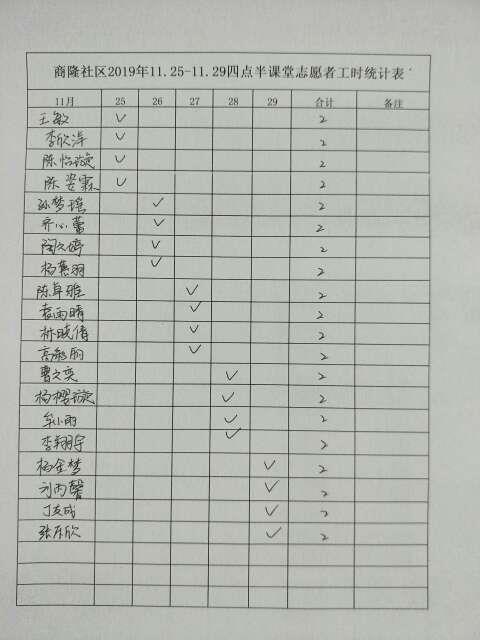 商隆社区2019年11.25-11.29四点半课堂志愿者工时统计表
11月 25 26 27 28 29 合计 备注
王敏 ✓ 2
李欣洋 ✓ 2
陈怡璇 ✓ 2
陈姿霖 ✓ 2
孙梦瑶 ✓ 2
齐心蕾 ✓ 2
陶文婷 ✓ 2
杨燕羽 ✓ 2
陈卓雅 ✓ 2
袁雨晴 ✓ 2
林晓倩 ✓ 2
高彩丽 ✓ 2
曹文奕 ✓ 2
杨樱璇 ✓ 2
牟小雨 ✓ 2
李翔宇 ✓ 2
杨金梦 ✓ 2
刘雨馨 ✓ 2
丁友成 ✓ 2
张存欣 ✓ 2